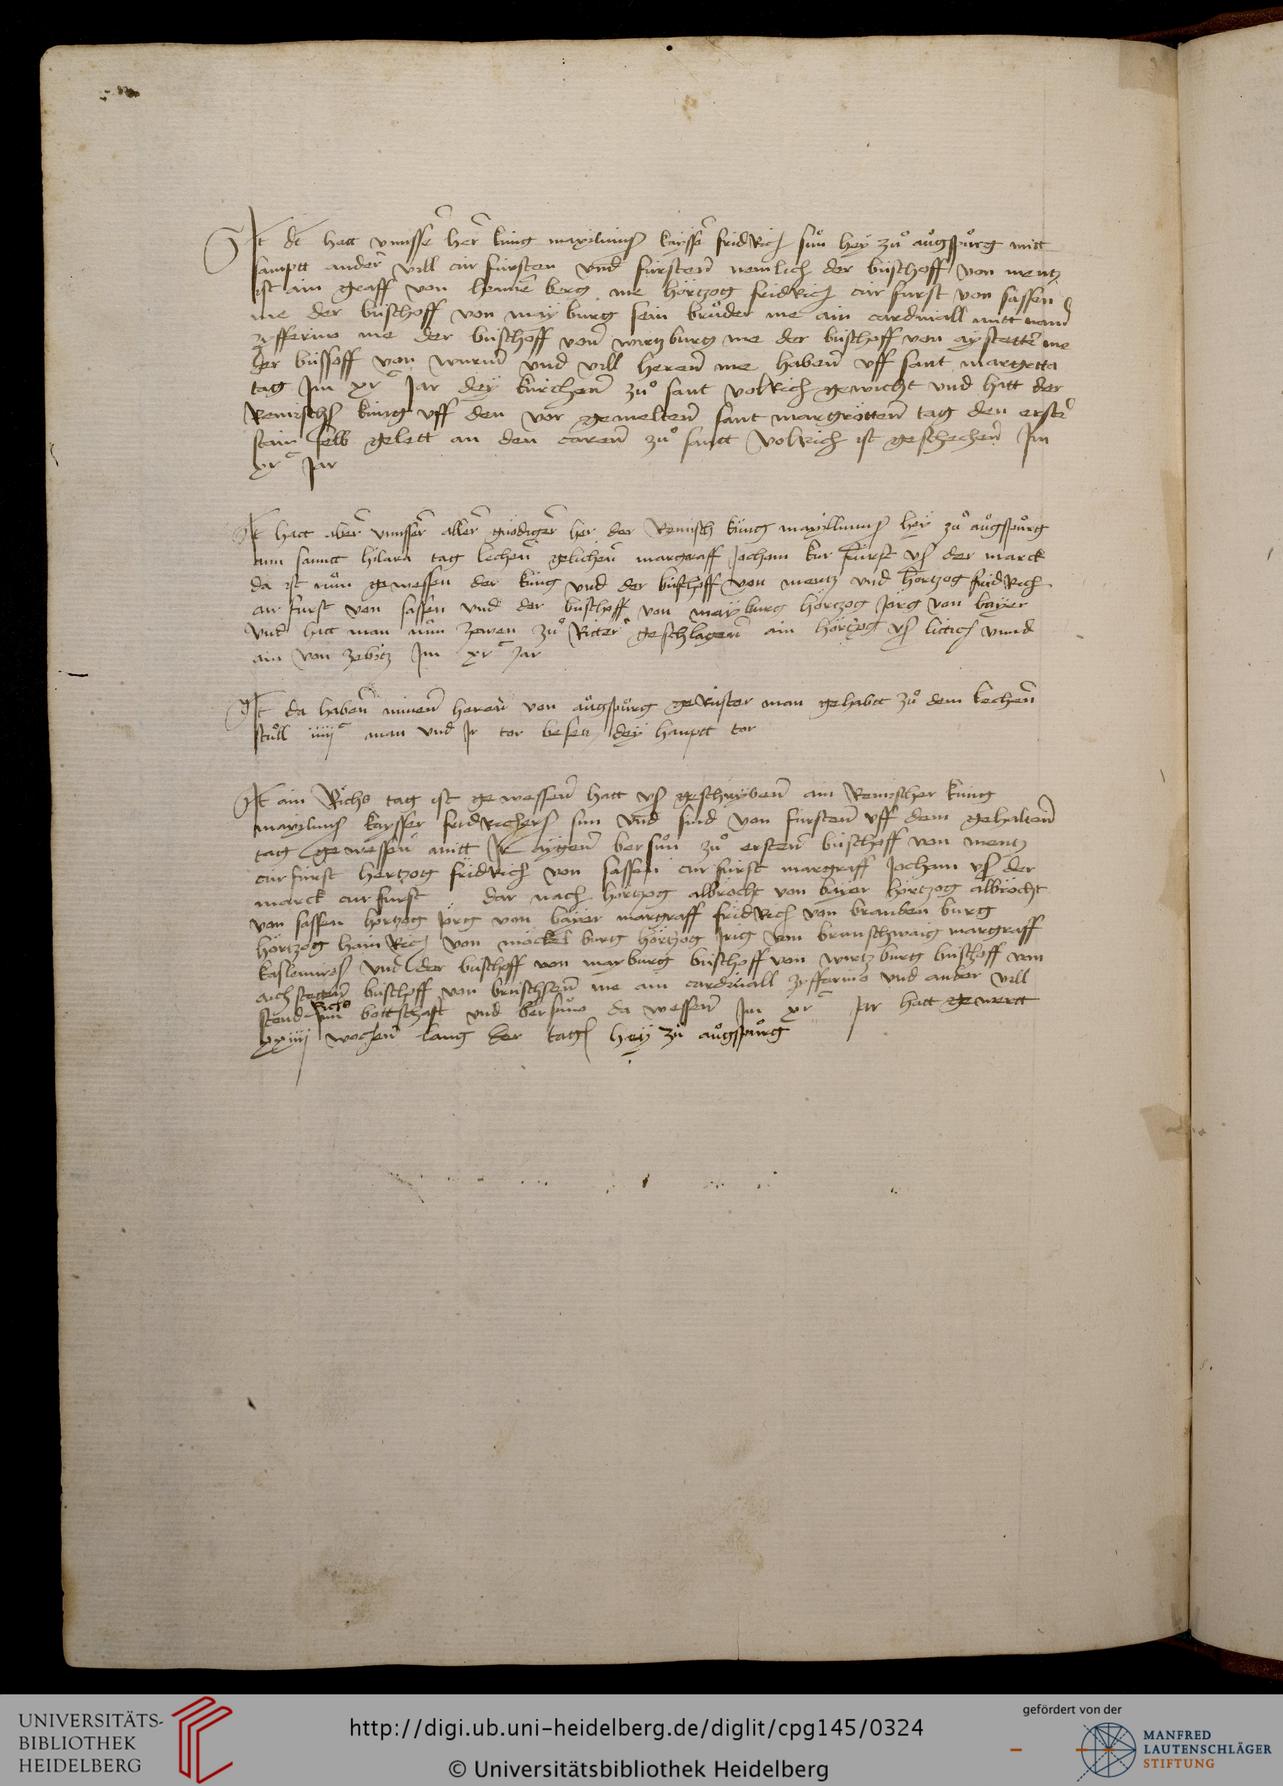 It de hatt vnnsser her küng maxilunus kaysser fridrich sun hey zuͦ augspurg mitt
sampt ander vill cur fursten vnd furstenn nemlich der büschoff von mentz
ist ain graff von hennen berg me hörtzog fridrich cur furst von sassen
me der büschoff von mayburg sein bruder me ain cardinall mitt namen
me der büschoff vonn wirtzburg me der büschoff von aystette me
der büssoff von wurms vnd vill herenn me habenn vff sant margretta
tag Im xvᶜ Jar dey kirchenn zuͦ sant volrich gewicht vnd hatt der
Remischs küng vff den vor gemeltenn sant margrettenn tag den ersten
stain selb gelett an den zuͦ santt volrich ist geschechenn Im
xvᶜ Jar
It hatt aber vnnsser aller gnediger her der Remisch küng maxillunus hey zuͦ augspurg
ann sanntt hilara tag lechenn gelichenn margraff Jocham kur furst vs der marck
da ist nun gewessen der küng vnd der büschoff von mentz vnd hortzog fridrich
cur furst von sassen vnd der büschoff von mayburg hörtzog Jörg von bayer
vnd hatt man nun zwen zuͦ Ritter geschlagenn ain hortzog vs vnnd
ain von Im xvᶜ Jar
It da habenn minen herenn von augspurg geRuster man gehabtt zuͦ dem lechen
stull iiiiᶜ man vnd Ir tor besetz dey hauptt tor
It ain Richs tag ist gewessenn hatt vs geschriybenn ain Remischer küng
maxilunus kaysser fridrichers sun vnd sind von furstenn vff dem gehaltenn
tag gewessenn mitt Ir aygenn bersun zuͦ erstenn büschoff von mentz
cur furst hertzog fridrich von sassen cur furst margraff Jocham vs der
marck cur furst dar nach hörtzog albrecht von bayer hörtzog albrecht
von sassen hortzog Jörg von bayer margraff fridrich von branden burg
hörtzog hainRich von mockelburg hörtzog Irig von brunschwaig margraff
kasemires vnd der büschoff von mayburg büschoff von wirtzburg büschoff von
aichstetten büschoff von me ain cardinall vnd ander vill
stend Richs bottschaft vnd bersuno da wessenn Im xvᶜ Jar hatt gewertt
xxiiij wochenn lang der tags hey zuͦ augspurg
UNIVERSITÄTS-
BIBLIOTHEK
HEIDELBERG
http://digi.ub.uni-heidelberg.de/diglit/cpg145/0324
© Universitätsbibliothek Heidelberg
gefördert von der
MANFRED
LAUTENSCHLÄGER
STIFTUNG